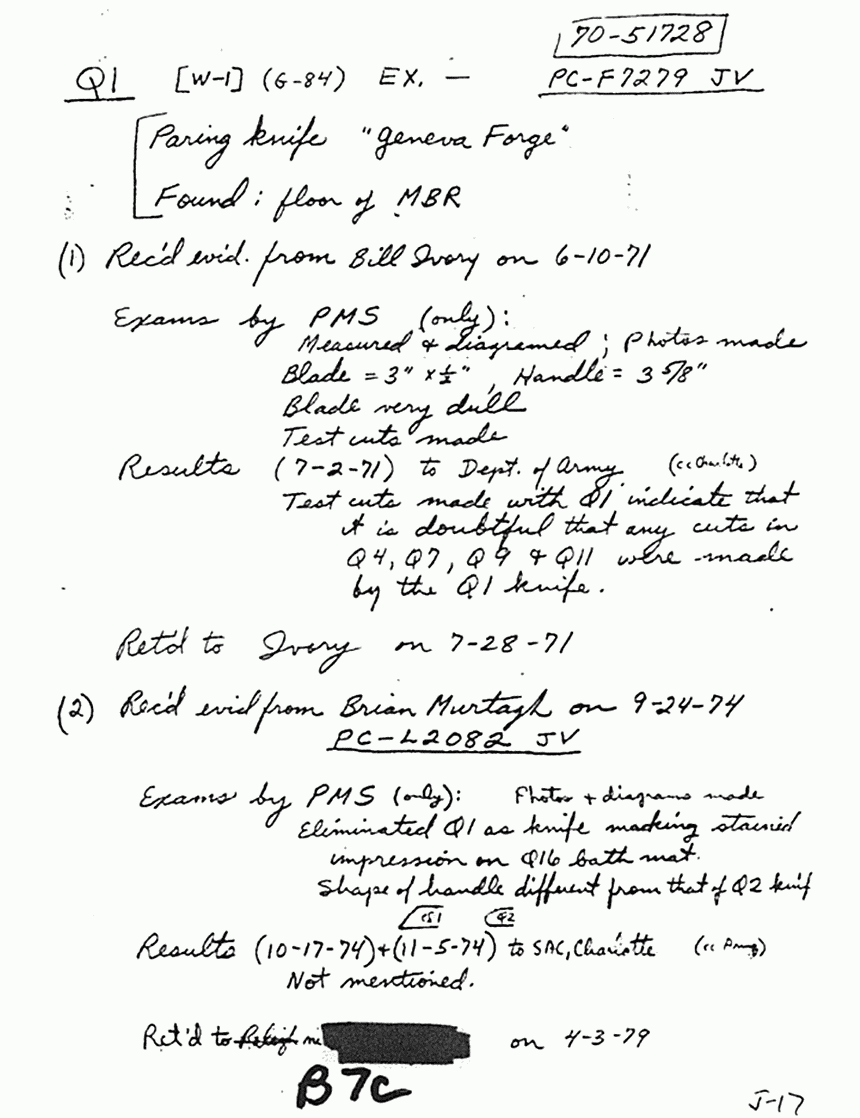 70-51728
Q1 [W-1] (G-84) EX. — PC-F7279 JV
Paring knife "Geneva Forge"
Found: floor of MBR
(1) Rec'd evid. from Bill Ivory on 6-10-71
Exams by PMS (only):
Measured & diagramed; Photos made
Blade = 3" x ½", Handle = 3 5/8"
Blade very dull
Test cuts made
Results (7-2-71) to Dept. of Army (cc Charlotte)
Test cuts made with Q1 indicate that
it is doubtful that any cuts in
Q4, Q7, Q9 & Q11 were made
by the Q1 knife.
Ret'd to Ivory on 7-28-71
(2) Rec'd evid from Brian Murtagh on 9-24-74
PC-L2082 JV
Exams by PMS (only): Photos + diagrams made
Eliminated Q1 as knife making stained
impression on Q16 bath mat.
Shape of handle different from that of Q2 knif
Q1 Q2
Results (10-17-74)+(11-5-74) to SAC, Charlotte (cc
Not mentioned.
Ret'd to on 4-3-79
B7C
J-17